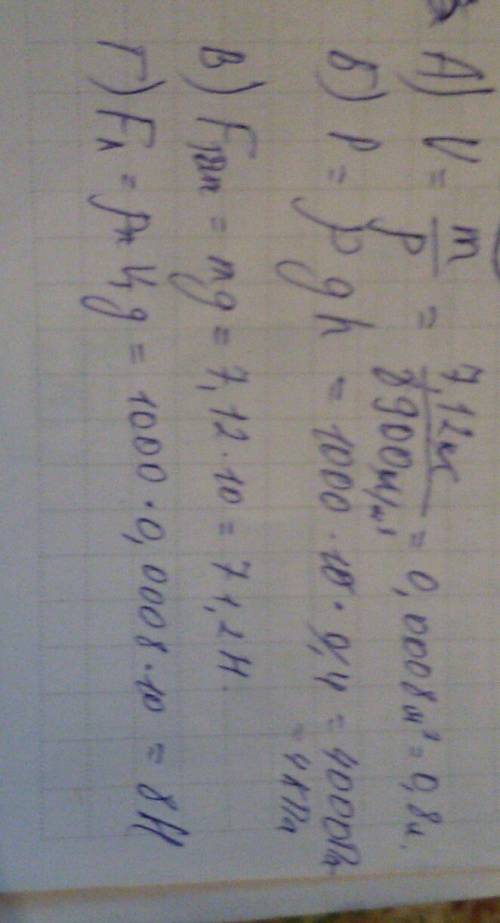 А) V = m/ρ = 7,12кг/8900кг/м³ = 0,0008м³ = 0,8л.
Б) P = ρgh = 1000·10·0,4 = 4000Па
= 4кПа
В) Fтяж = mg = 7,12·10 = 71,2Н.
Г) FА = ρж Vg = 1000·0,0008·10 = 8Н